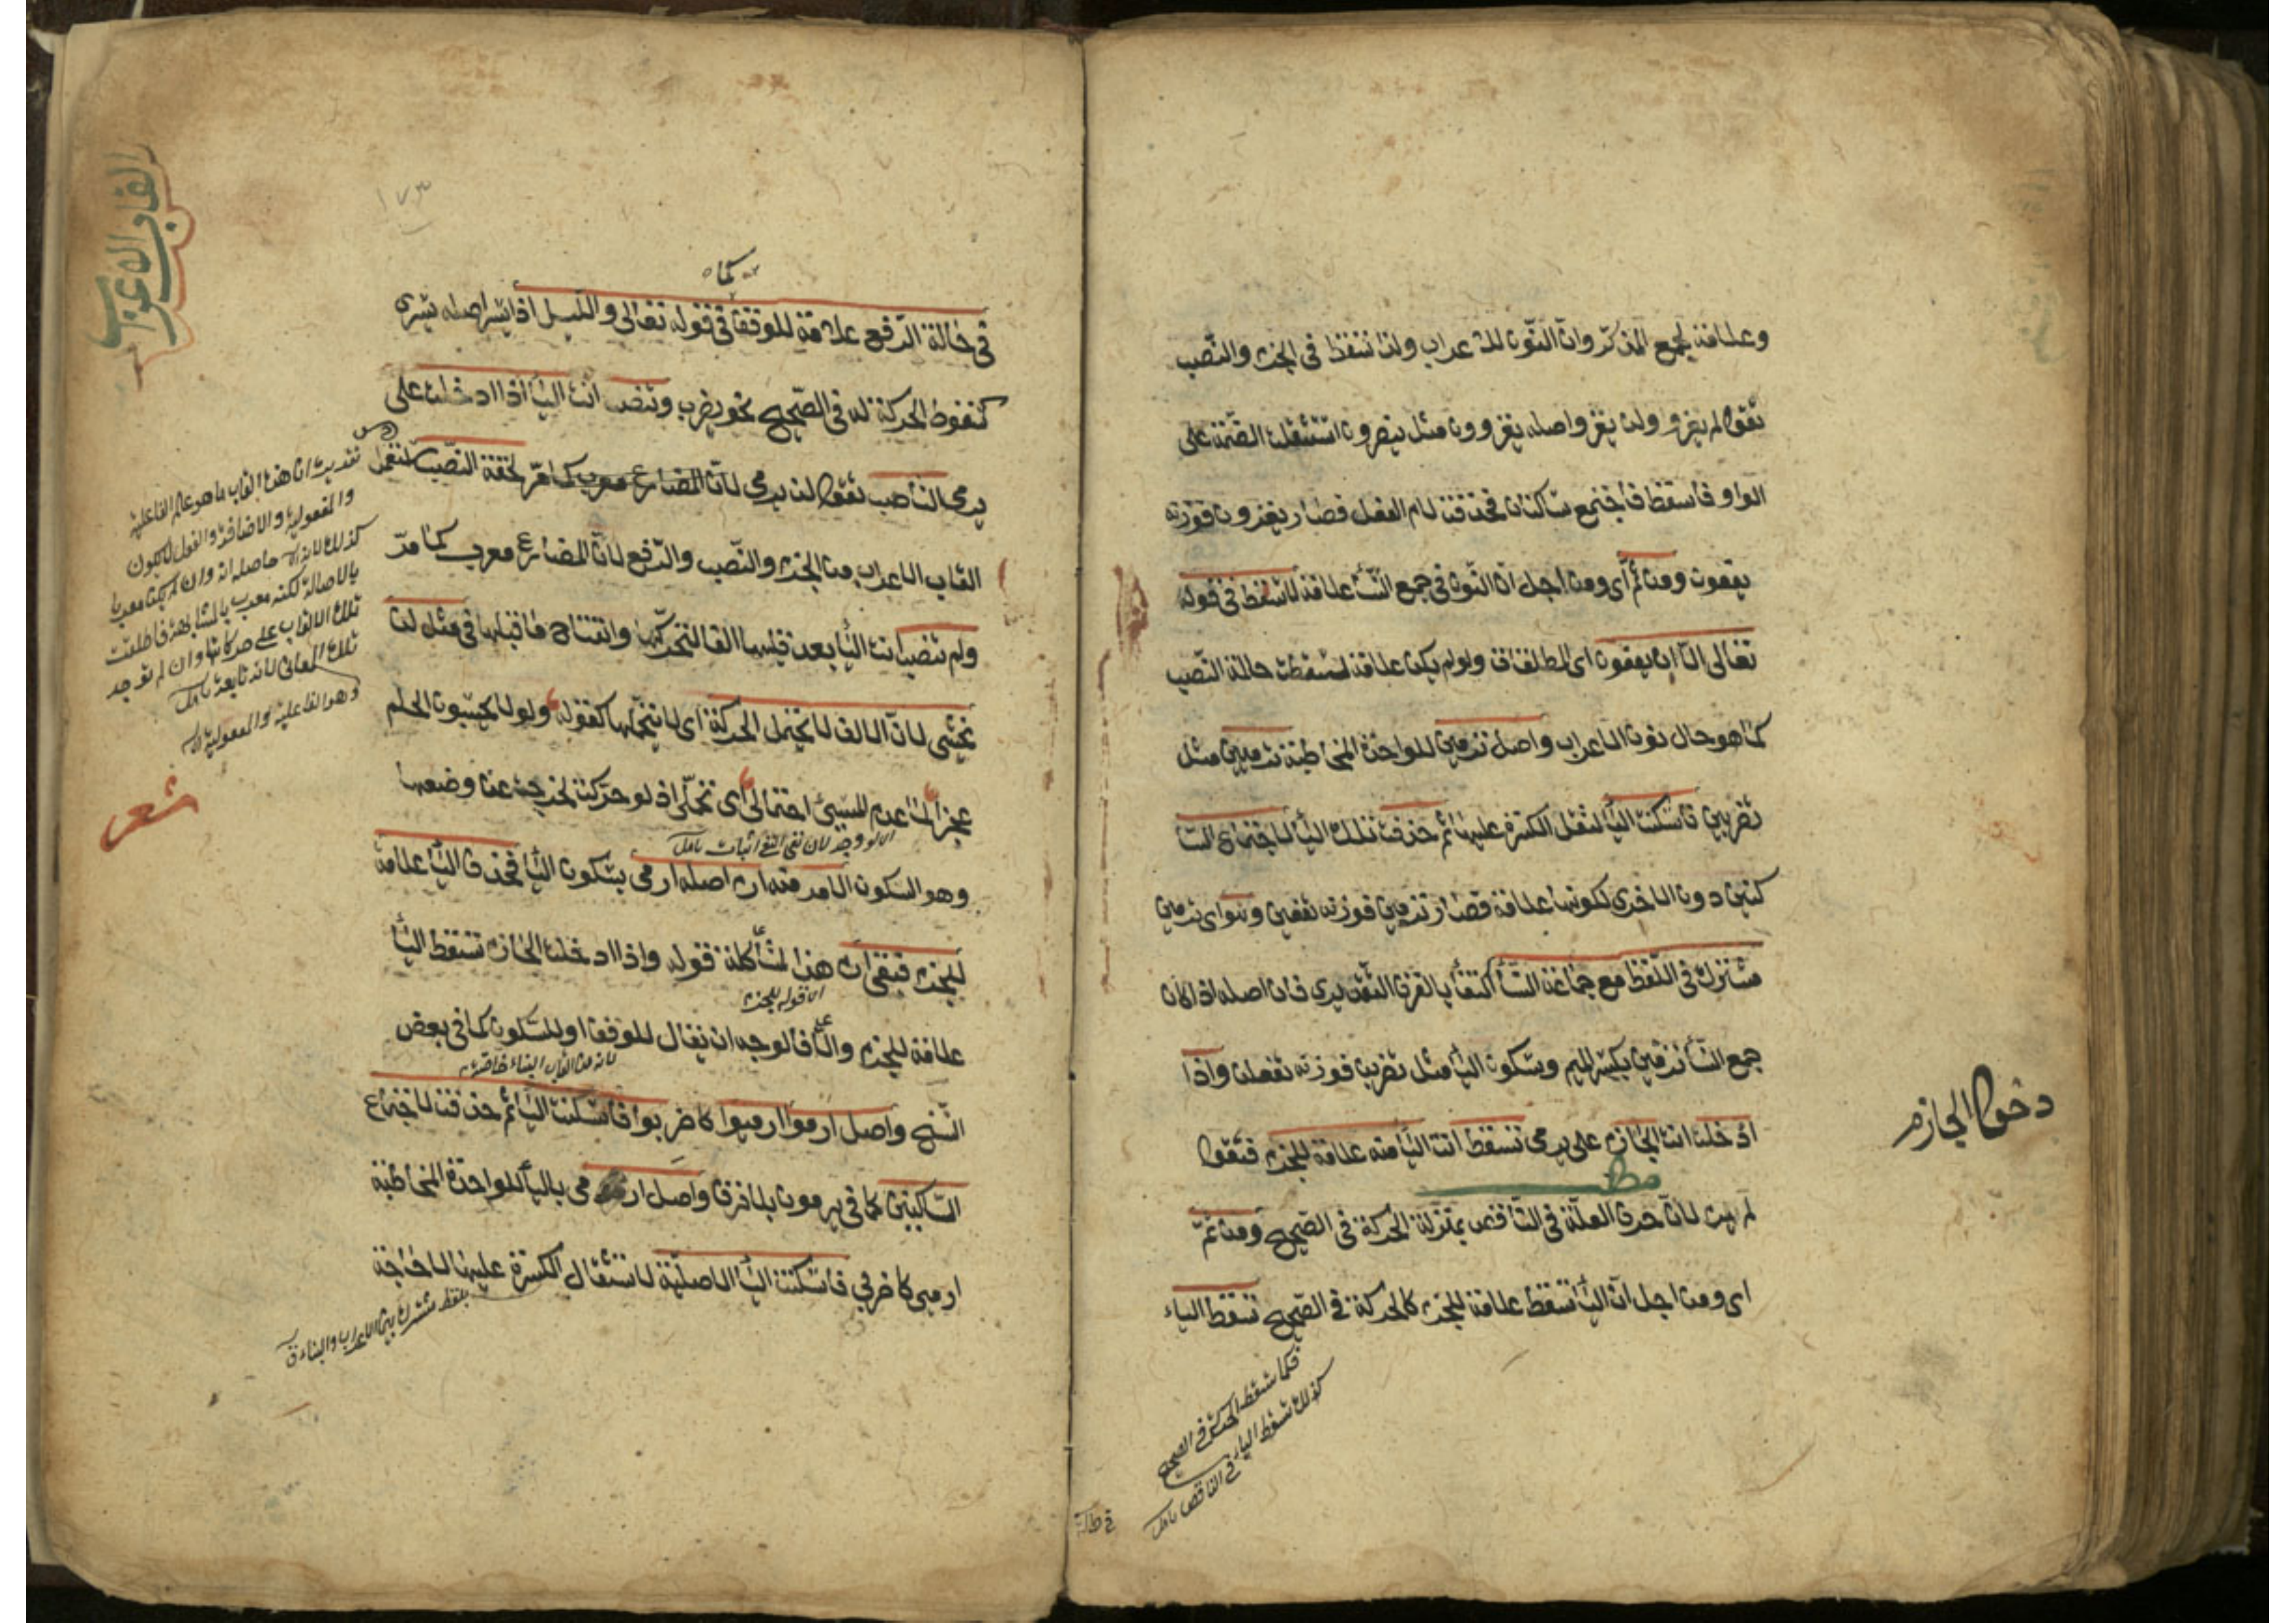 وعلامة لجمع المذكر وان النون للاعراب ولذا تسقط فى الجزم والنصب
تقول لم يغزو ولن يغز واصله يغزوون مثل ينصرون استثقلت الضمة على
الواو فاسقط فاجتمع ساكنان فحذفت لام الفعل فصار يغزون فوزنه
يفعون ومن ثم اى ومن اجل ان النون فى جمع النساء علامة لا تسقط فى قوله
تعالى الا ان يعفون اى المطلقات ولو لم يكن علامة لسقطت حالة النصب
كما هو حال نون الاعراب واصل ترمين للواحدة المخاطبة ترميين مثل
تضربين فاسكنت الياء لثقل الكسرة عليها ثم حذفت تلك الياء لاجتماع السا
كنين دون الاخرى لكونها علامة فصار ترمين فوزنه تفعين و اى ترمين
مشترك فى اللفظ مع جماعة النساء اكتفاء بالفرق التقديرى فان اصله اذا كان
جمع النساء ترمين بكسر الميم وسكون الياء مثل تضربن فوزنه تفعلن واذا
ادخلت انت الجازم على يرمى تسقط انت الياء منه علامة للجزم فتقول
دخول الجازم
لم يرم لان حرف العلة فى الناقص بمنزلة الحركة فى الصحيح ومن ثم
اى ومن اجل ان الياء تسقط علامة للجزم كالحركة فى الصحيح تسقط الياء
فكما سقط الحركة فى الصحيح
كذلك سقوط الياء فى الناقص تامل
فى حالة
١٧٣
القاب الاعراب
فى حالة الرفع علامة للوقف فى قوله تعالى والليل اذا يسر اصله يسرى
كسقوط الحركة له فى الصحيح نحو يضرب وتنصب انت الياء اذا ادخلت على
يرمى الناصب تقول لن يرمى لان المضارع معرب كما مر لخفة النصب
القاب الاعراب من الجزم والنصب والرفع لان المضارع معرب كما مر
ولم تنصب انت الياء بعد قلبها الفا لتحركها وانفتاح ما قبلها فى مثل لن
تخشى لان الالف لا تحتمل الحركة اى لا تتحملها كقوله ولولا يحسبون الحلم
عجزا لما عدم المسيئ احتمالى اى تحملى اذ لو حركت لخرجت عن وضعها
وهو السكون الامر منه ارم اصله ارمى بسكون الياء فحذف الياء علامة
للجزم فبقى ارم هذا لمشاكلة قوله واذا ادخلت الجازم تسقط الياء
اى قوله للجزم
علامة للجزم والا فالوجه ان يقال للوقف او للسكون كما فى بعض
لانه من القاب البناء خاصة
النسخ واصل ارموا ارميوا كاضربوا فاسكنت الياء ثم حذفت لاجتماع
الساكنين كما فى يرمون بلا فرق واصل ارمى بالياء للواحدة المخاطبة
ارميى كاضربى فاسكنت الياء الاصلية لاستثقال الكسرة عليها لا حاجة
والمفعولية والاضافة والفعل لا يكون
كذلك حاصله انه وان لم يكن معربا
بالاصالة لكنه معرب بالمشابهة فاطلقت
تلك الالقاب على حركاتها وان لم توجد
تلك المعانى لانه تابعة تامل
وهو الفاعلية والمفعولية
شعر